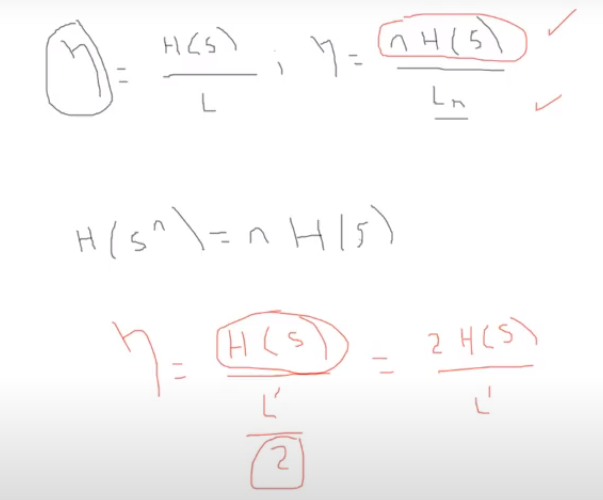 η = H(S) / L ; η = n H(S) / Ln
H(Sⁿ) = n H(S)
η = H(S) / (L' / 2) = 2 H(S) / L'